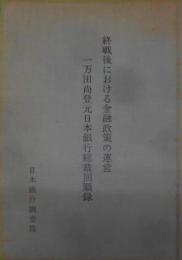 終戦後における金融政策の運営
一万田尚登元日本銀行総裁回顧録
日本銀行調査局